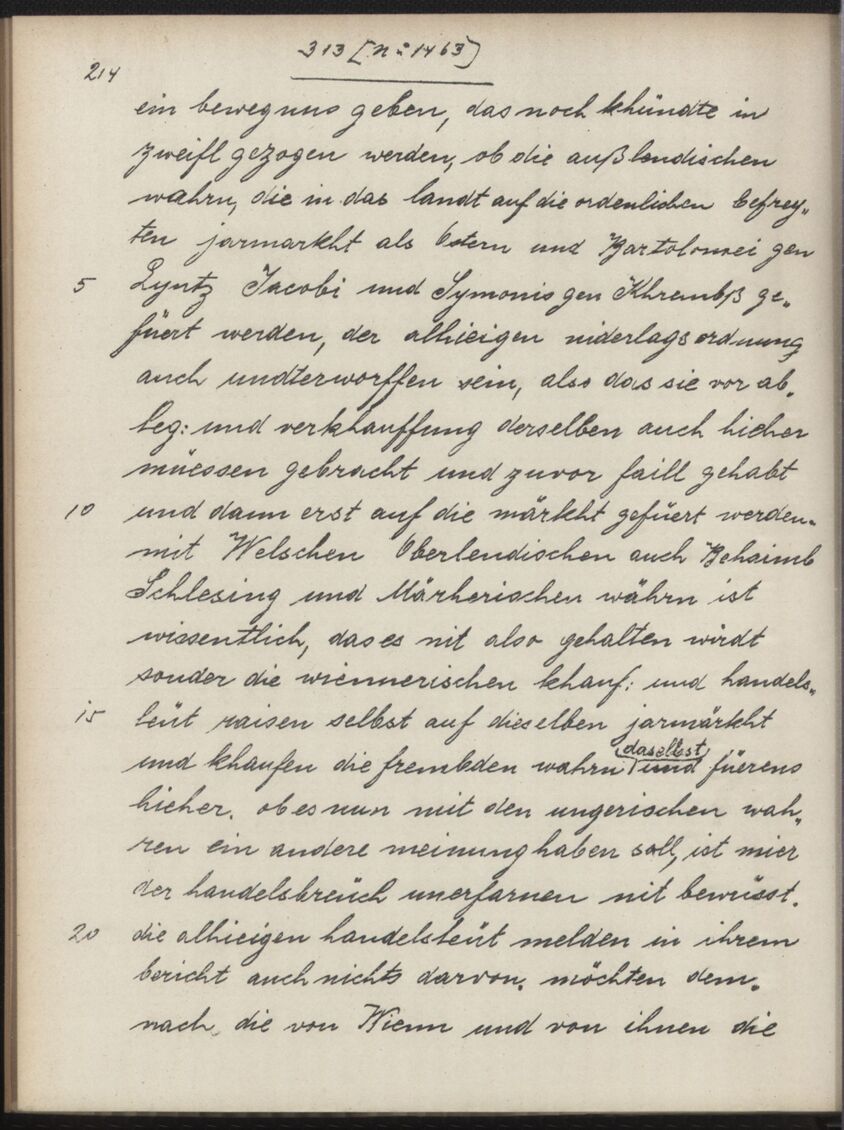 313 [nº 1463]
214
ein bewegnus geben, das noch khündte in
zweifl gezogen werden, ob die außlendischen
wahrn, die in das landt auf die ordenlichen befrey„
ten jarmarkht als Ostern und Bartolomei gen
5 Lyntz Jacobi und Symonis gen Khrembß ge„
füert werden, der alhieigen niderlagsordnung
auch undterworffen sein, also das sie vor ab„
leg: und verkhauffung derselben auch hieher
müessen gebracht und zuvor faill gehabt
10 und dann erst auf die märkht gefüert werden.
mit Welschen Oberlendischen auch Behaimb
Schlesing und Märherischen währn ist
wissentlich, das es nit also gehalten wirdt
sonder die wiennerischen khauf: und handels„
15 leüt raisen selbst auf dieselben jarmärkht
und khaufen die frembden wahrn daselbst und füerens
hieher. ob es nun mit den ungerischen wah„
ren ein andere meinung haben soll, ist mier
der handelsbreüch unerfarnen nit bewüsst.
20 die alhieigen handelsleüt melden in ihrem
bericht auch nichts darvon. möchten dem„
nach, die von Wienn und von ihnen die